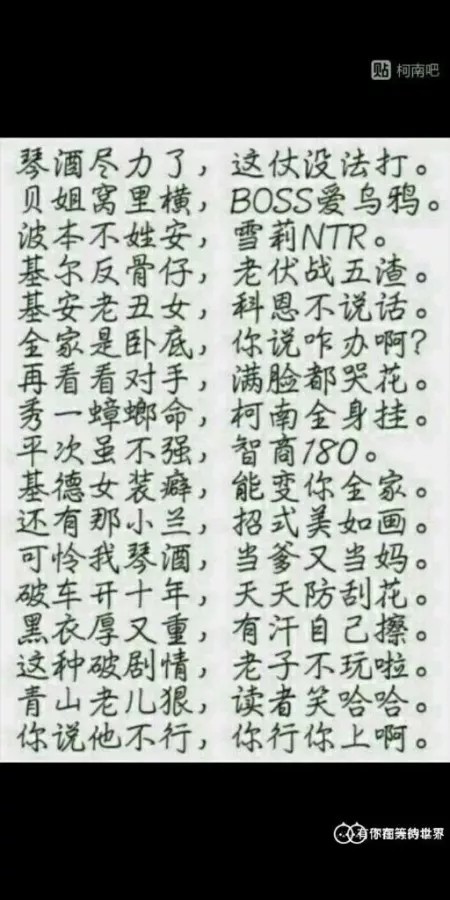 贴 柯南吧
琴酒尽力了，这仗没法打。
贝姐窝里横，BOSS爱乌鸦。
波本不姓安，雪莉NTR。
基尔反骨仔，老伏战五渣。
基安老丑女，科恩不说话。
全家是卧底，你说咋办啊？
再看看对手，满脸都哭花。
秀一蟑螂命，柯南全身挂。
平次虽不强，智商180。
基德女装癖，能变你全家。
还有那小兰，招式美如画。
可怜我琴酒，当爹又当妈。
破车开十年，天天防刮花。
黑衣厚又重，有汗自己擦。
这种破剧情，老子不玩啦。
青山老儿狠，读者笑哈哈。
你说他不行，你行你上啊。